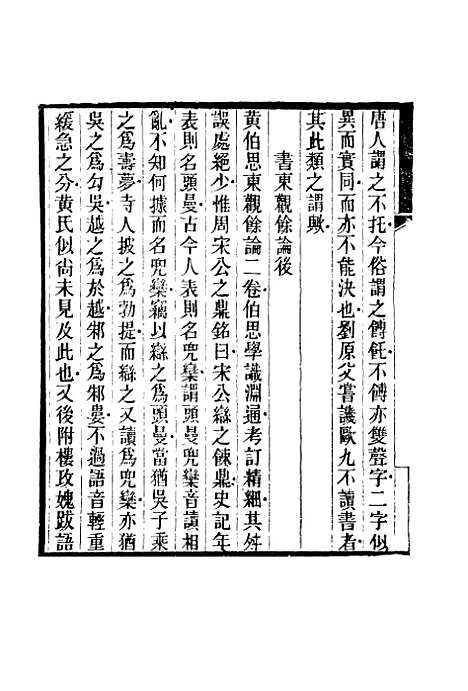 唐人謂之不托今俗謂之餺飥不餺亦雙聲字二字似
異而實同而亦不能決也劉原父嘗譏歐九不讀書者
其此類之謂歟
書東觀餘論後
黃伯思東觀餘論二卷伯思學識淵通考訂精細其舛
誤處絕少惟周宋公之鼎銘曰宋公䜌之餗鼎史記年
表則名頭曼古今人表則名兜欒謂頭曼兜欒音讀相
亂不知何據而名兜欒竊以䜌之爲頭曼當猶吳子乘
之爲壽夢寺人披之爲勃提而䜌之又讀爲兜欒亦猶
吳之爲勾吳越之爲於越邾之爲邾婁不過語音輕重
緩急之分黃氏似尚未見及此也又後附樓攻媿跋語